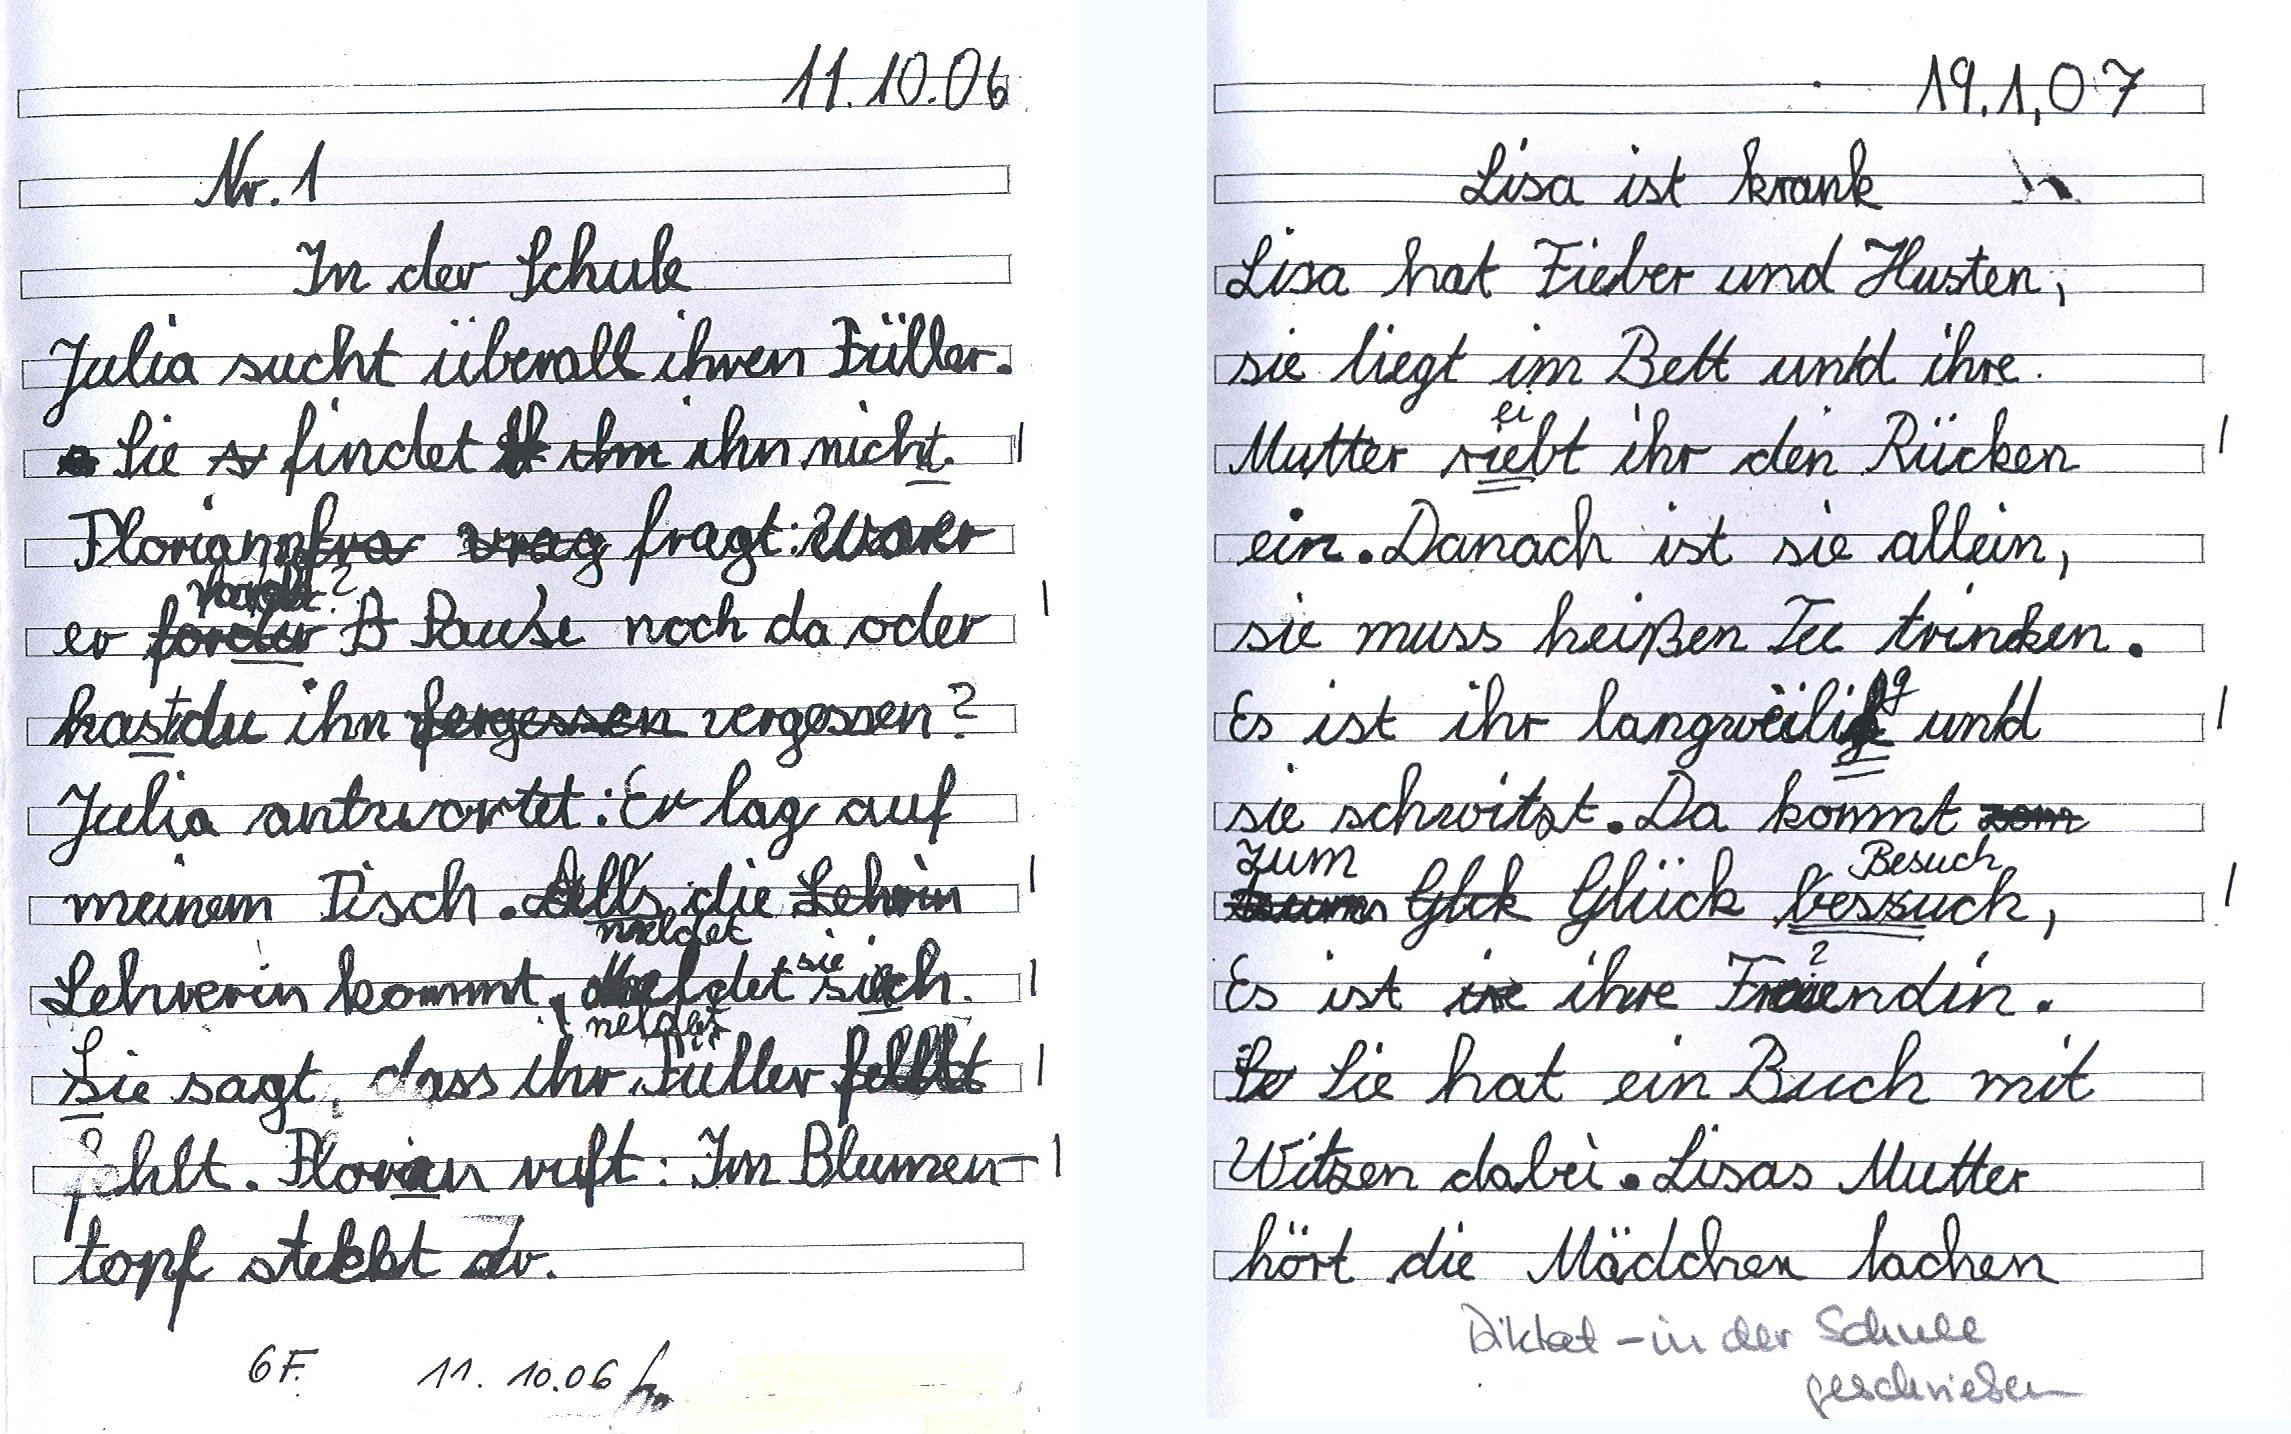 11.10.06
Nr. 1
In der Schule
Julia sucht überall ihren Füller.
Sie findet ihm ihn nicht.
Florian fra vrag fragt: War er
er vor der ? Pause noch da oder
hast du ihn fergessen vergessen?
Julia antwortet: Er lag auf
meinem Tisch. Alls die Lehrin
meldet
Lehrerin kommt, meldet sie sich.
meldet
Sie sagt, dass ihr Füller fehlt
fehlt. Florian ruft: Im Blumen-
topf steckt er.
6 F. 11.10.06
19.1,07
Lisa ist krank
Lisa hat Fieber und Husten,
sie liegt im Bett und ihre
ei
Mutter riebt ihr den Rücken
ein. Danach ist sie allein,
sie muss heißen Tee trinken.
g
Es ist ihr langweilig und
sie schwitzt. Da kommt zom
zum Besuch
Glck Glück bessuch,
?
Es ist ire ihre Freuendin.
Sie hat ein Buch mit
Witzen dabei. Lisas Mutter
hört die Mädchen lachen
Diktat - in der Schule
geschrieben